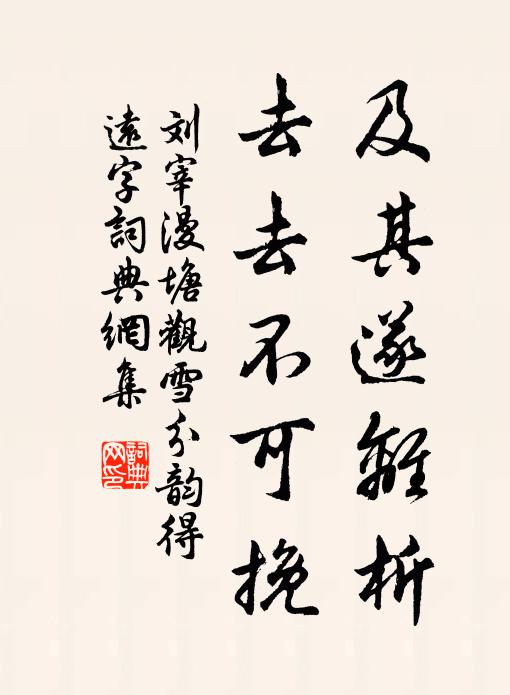 及其遂離析
去去不可挽
刘宰漫塘觀雪分韵得
遠字詞典網集
詞典
网印